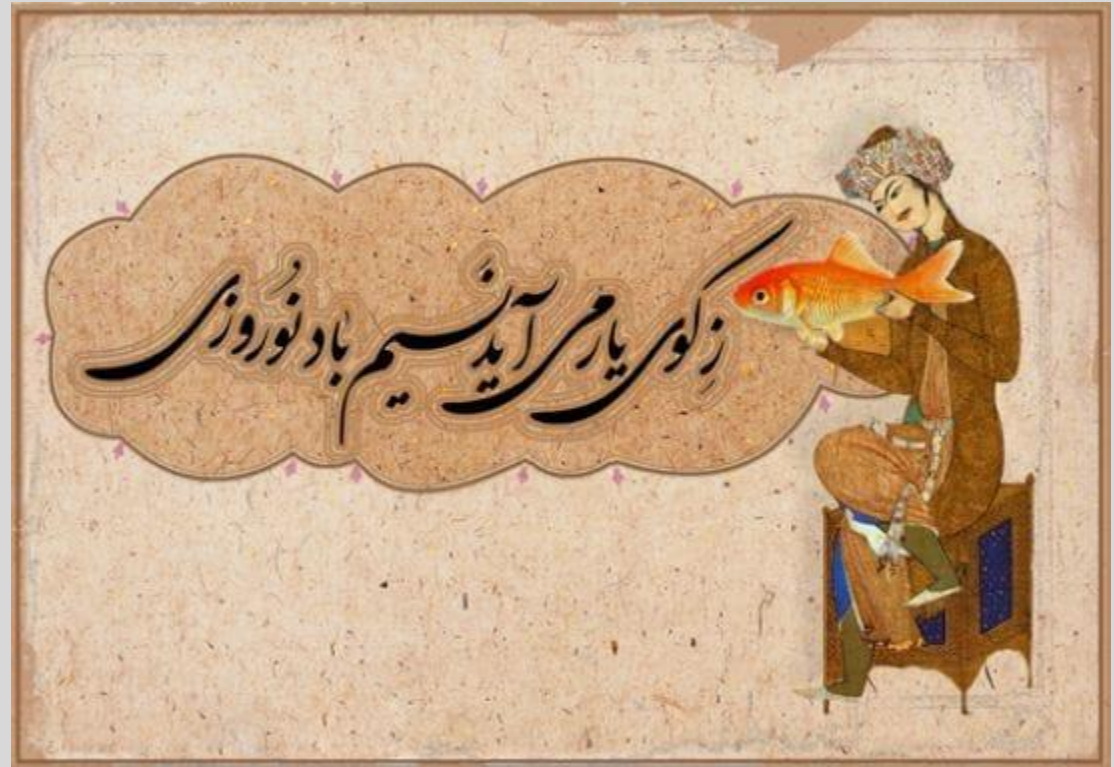 زِ کوی یار می آید نسیم باد نوُروزی